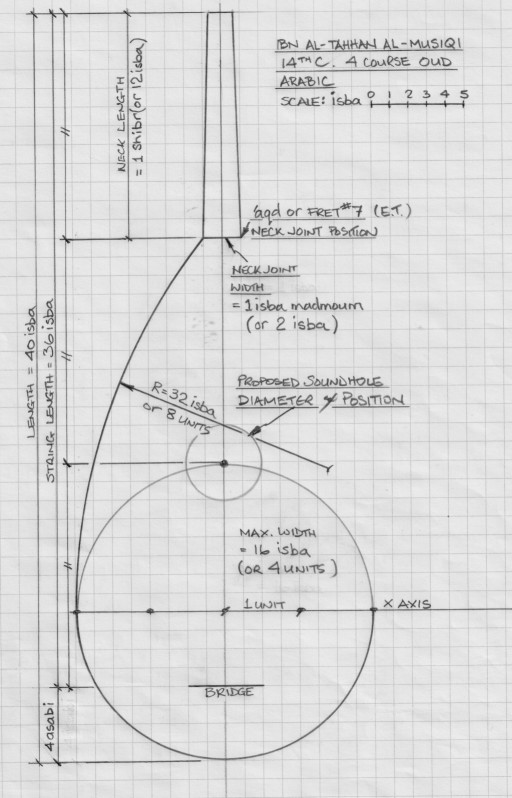 IBN AL-TAHHAN AL-MUSIQI
14TH C. 4 COURSE OUD
ARABIC
SCALE: isba 0 1 2 3 4 5
NECK LENGTH
= 1 Shibr (or 12 isba)
'aqd or FRET #7 (E.T.)
NECK JOINT POSITION
NECK JOINT
WIDTH
= 1 isba madmoum
(or 2 isba)
LENGTH = 40 isba
STRING LENGTH = 36 isba
R=32 isba
or 8 UNITS
PROPOSED SOUNDHOLE
DIAMETER & POSITION
MAX. WIDTH
= 16 isba
(OR 4 UNITS)
1 UNIT
X AXIS
BRIDGE
4 asabi